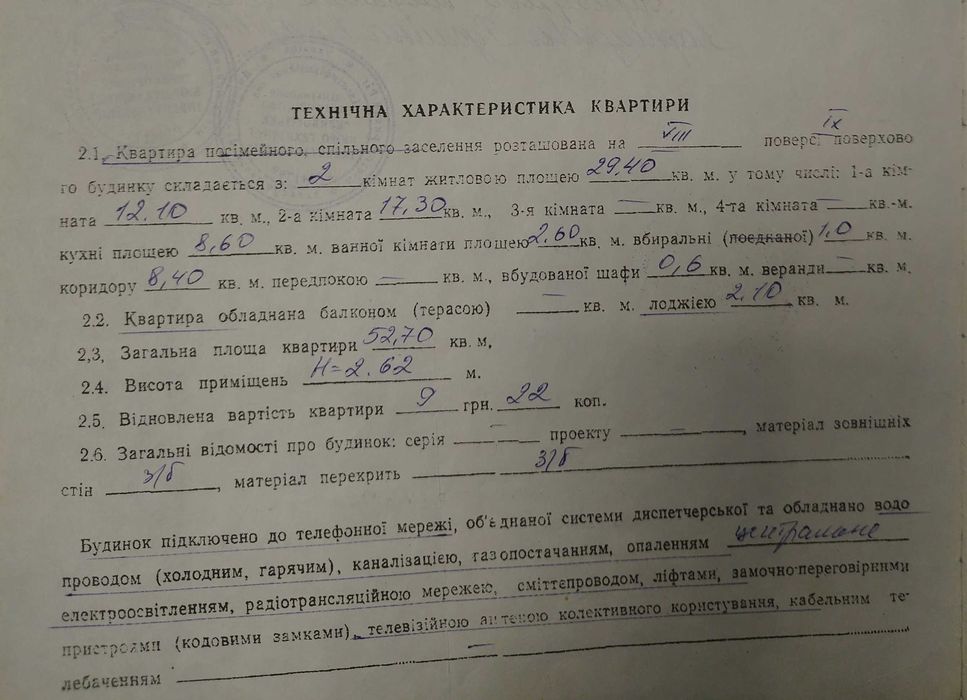 ТЕХНІЧНА ХАРАКТЕРИСТИКА КВАРТИРИ
2.1. Квартира посімейного, спільного заселення розташована на VIII поверсі IX поверхово
го будинку складається з: 2 кімнат житловою площею 29,40 кв. м. у тому числі: 1-а кім-
ната 12.10 кв. м., 2-а кімната 17,30 кв. м., 3-я кімната — кв. м., 4-та кімната — кв.-м.
кухні площею 8,60 кв. м. ванної кімнати площею 2,60 кв. м. вбиральні (поєднаної) 1,0 кв. м.
коридору 8,40 кв. м. передпокою — кв. м., вбудованої шафи 0,6 кв. м. веранди — кв. м.
2.2. Квартира обладнана балконом (терасою) — кв. м. лоджією 2.10 кв. м.
2,3, Загальна площа квартири 52,70 кв. м,
2.4. Висота приміщень H=2.62 м.
2.5. Відновлена вартість квартири 9 грн. 22 коп.
2.6. Загальні відомості про будинок: серія — проекту —, матеріал зовнішніх
стін з/б, матеріал перекрить з/б
Будинок підключено до телефонної мережі, об'єднаної системи диспетчерської та обладнано водо
проводом (холодним, гарячим), каналізацією, газопостачанням, опаленням централізоване
електроосвітленням, радіотрансляційною мережею, сміттєпроводом, ліфтами, замочно-переговірними
пристроями (кодовими замками), телевізійною антеною колективного користування, кабельним те-
лебаченням —